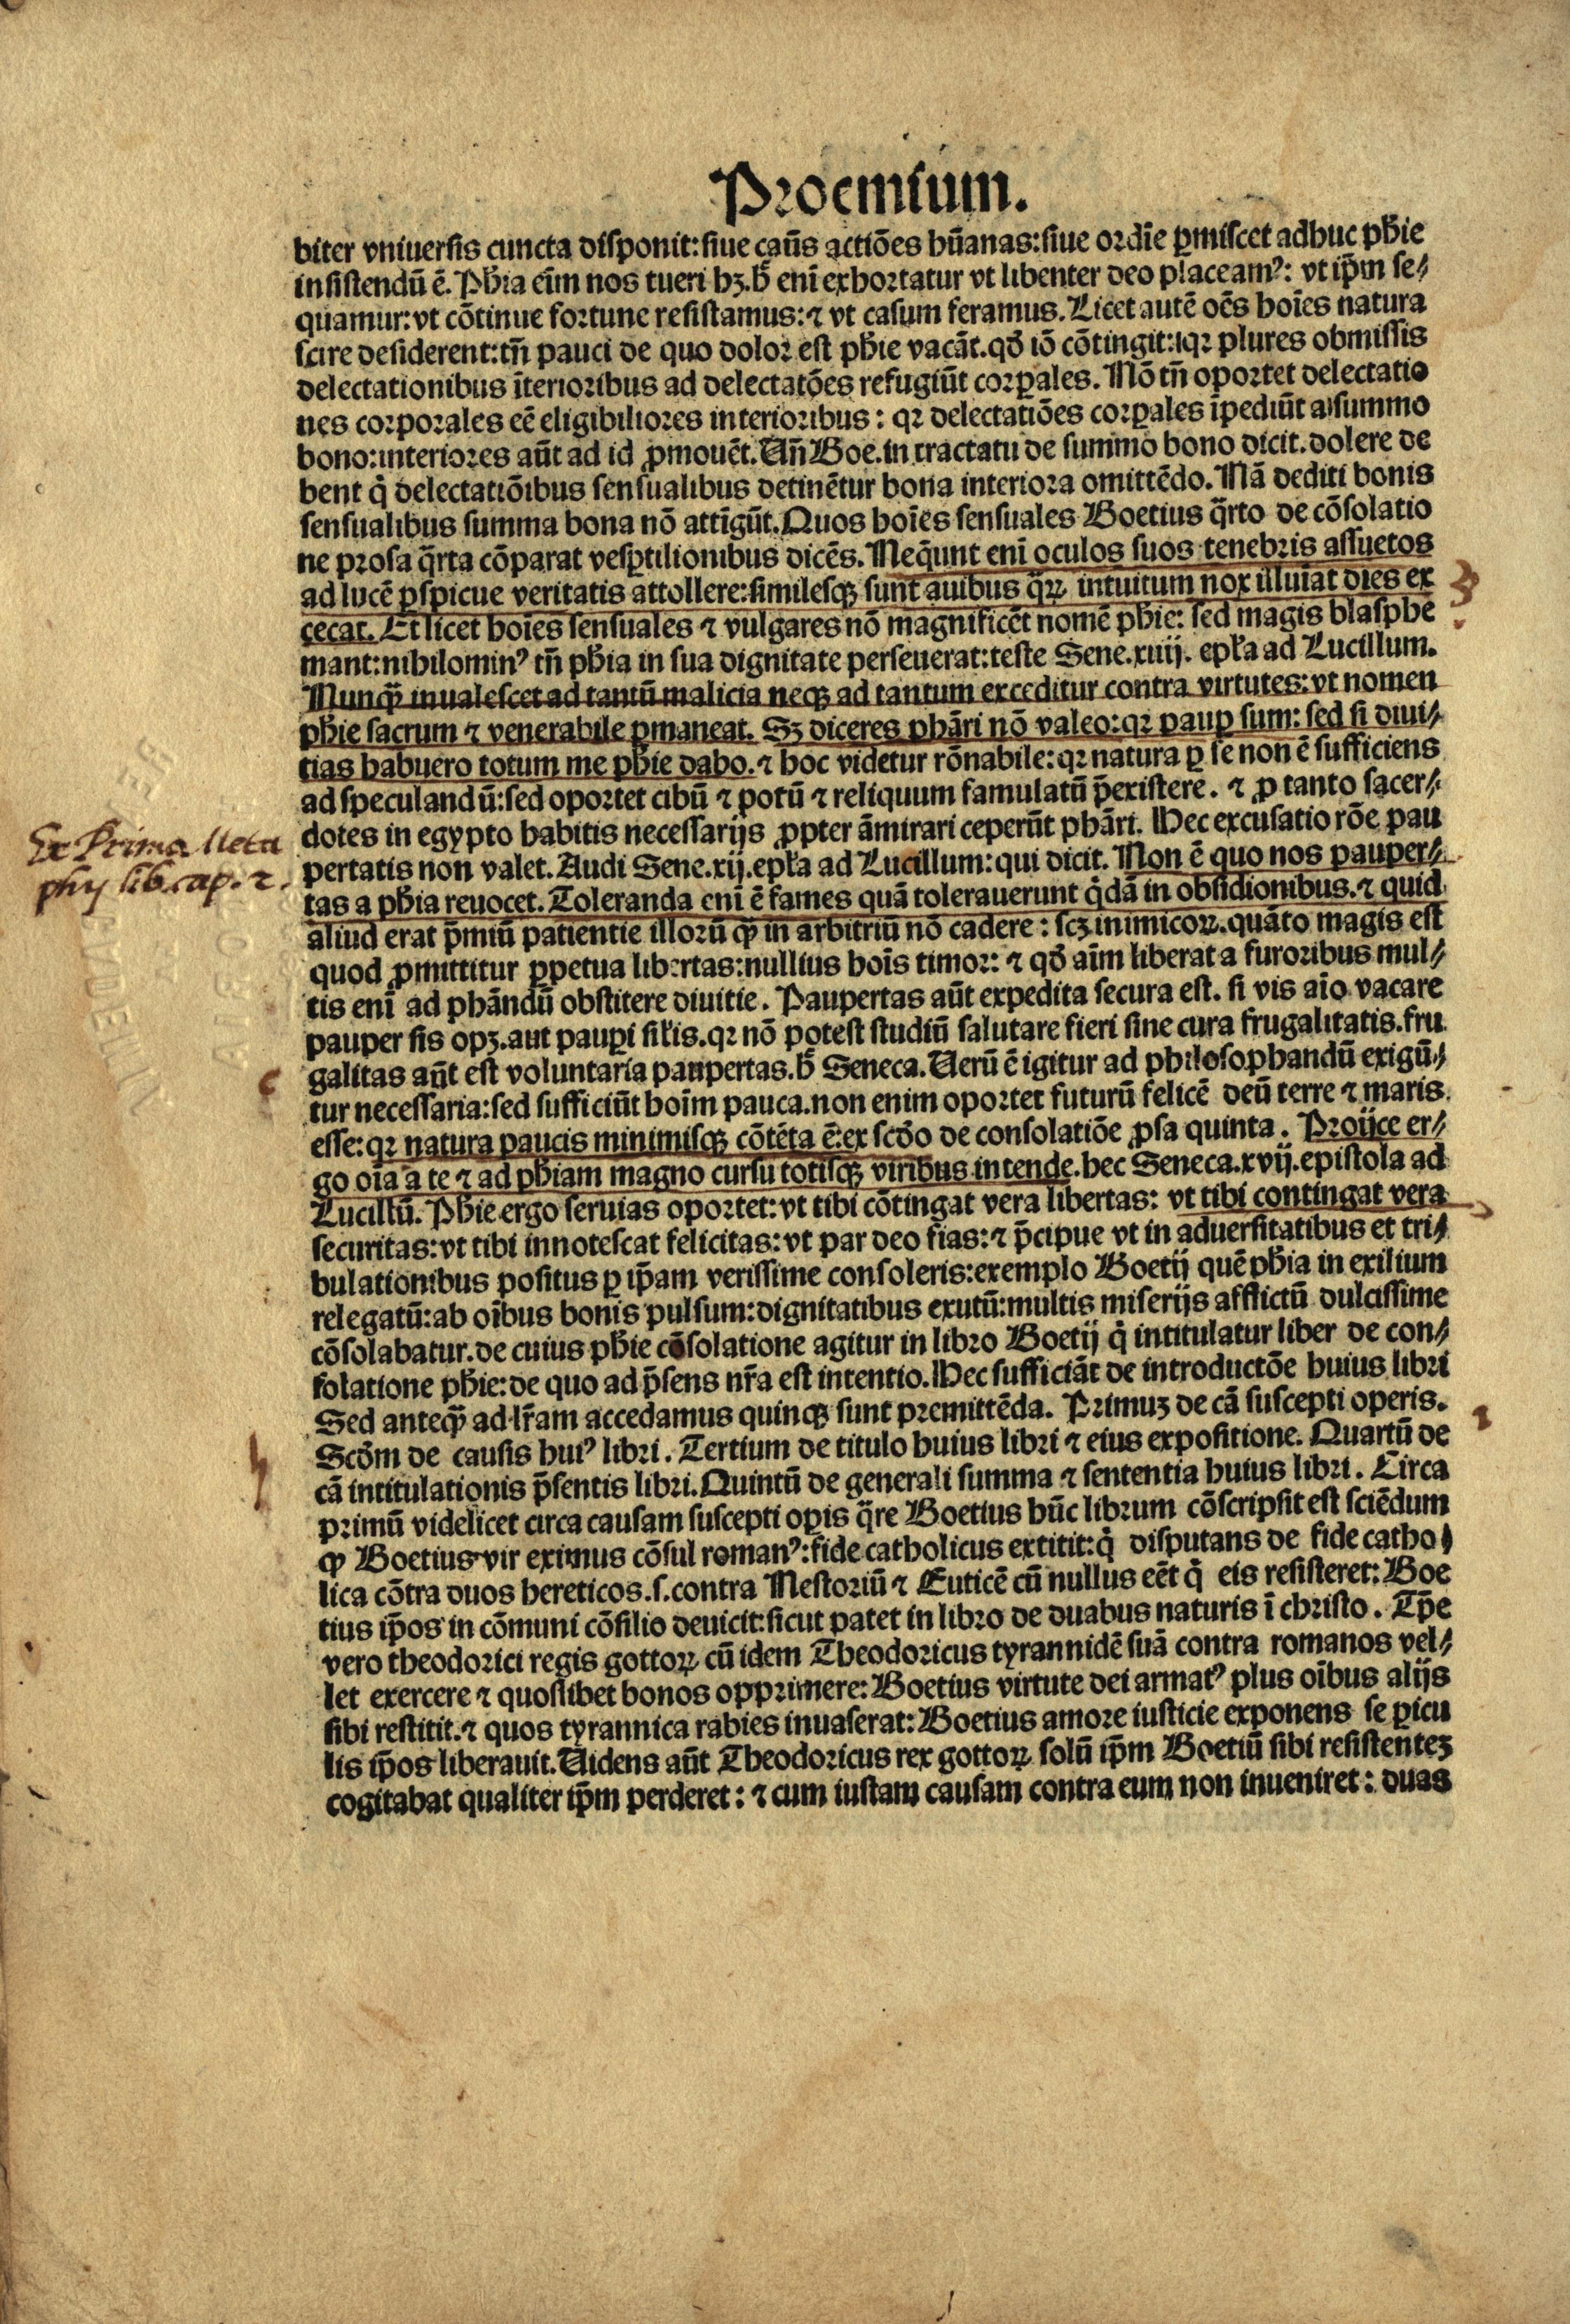 Proemium.
biter vniuersis cuncta disponit:siue caũs actiões hũanas:siue ordĩe p̲miscet adhuc ph̃ie
insistendũ ẽ. Ph̃ia eĩm nos tueri hꝫ.h̃ enĩ exhortatur vt libenter deo placeamꝰ: vt ip̃m se⸗
quamur:vt cõtinue fortune resistamus:⁊ vt casum feramus. Licet autẽ oẽs hoĩes natura
scire desiderent:tñ pauci de quo dolor est ph̃ie vacãt.qđ iõ cõtingit:qꝛ plures obmissis
delectationibus ĩterioribus ad delectatões refugiũt corꝑales. Nõ tñ oportet delectatio
nes corporales eẽ eligibiliores interioribus: qꝛ delectatiões corꝑales ĩpediũt a summo
bono:interiores aũt ad id ꝓmouẽt. Uñ Boe.in tractatu de summo bono dicit.dolere de
bent q̇ delectatiõibus sensualibus detinẽtur bona interiora omittẽdo. Nã dediti bonis
sensualibus summa bona nõ attĩgũt. Quos hoĩes sensuales Boetius q̃rto de cõsolatio
ne prosa q̃rta cõparat vesꝑtilionibus dicẽs. Neq̃unt enĩ oculos suos tenebris assuetos
ad lucẽ ꝑspicue veritatis attollere:similesqꝫ sunt auibus q̃ꝝ intuitum nox illuĩat dies ex
cecat. Et licet hoĩes sensuales ⁊ vulgares nõ magnificẽt nomẽ ph̃ie: sed magis blasphẽ
mant:nihilominꝰ tñ ph̃ia in sua dignitate perseuerat:teste Sene.xiiij. ep̃ła ad Lucillum.
Nunqꝫ̃ inualescet ad tantũ malicia neqꝫ ad tantum exceditur contra virtutes:vt nomen
ph̃ie sacrum ⁊ venerabile ꝑmaneat. Sꝫ diceres phãri nõ valeo:qꝛ pauꝑ sum: sed si diui⸗
tias habuero totum me ph̃ie dabo.⁊ hoc videtur rõnabile:qꝛ natura ꝑ se non ẽ sufficiens
ad speculandũ:sed oportet cibũ ⁊ potũ ⁊ reliquum famulatũ p̃existere. ⁊ ꝓ tanto sacer⸗
dotes in egypto habitis necessarijs ꝓpter ãmirari ceperũt phãri. Hec excusatio rõe pau
pertatis non valet. Audi Sene.xij.ep̃ła ad Lucillum:qui dicit. Non ẽ quo nos pauper⸗
tas a ph̃ia reuocet. Toleranda enĩ ẽ fames quã tolerauerunt q̇dã in obsidionibus.⁊ quid
aliud erat p̃miũ patientie illorũ qꝫ̃ in arbitriũ nõ cadere: scꝫ inimicoꝝ.quãto magis est
quod ꝓmittitur ꝑpetua libertas:nullius hoĩs timor: ⁊ qđ aĩm liberat a furoribus mul⸗
tis enĩ ad phãndũ obstitere diuitie. Paupertas aũt expedita secura est. si vis aĩo vacare
pauper sis opꝫ.aut pauꝑi sił̃is.qꝛ nõ potest studiũ salutare fieri sine cura frugalitatis.fru
galitas aũt est voluntaria paupertas.h̃ Seneca. Uerũ ẽ igitur ad philosophandũ exigũ⸗
tur necessaria:sed sufficiũt hoĩm pauca.non enim oportet futurũ felicẽ deũ terre ⁊ maris
esse:qꝛ natura paucis minimisqꝫ cõtẽta ẽ:ex scđo de consolatiõe ꝓsa quinta. Proijce er⸗
go oĩa a te ⁊ ad ph̃iam magno cursu totisqꝫ viribus intende.hec Seneca.xvij.epistola ad
Lucillũ. Ph̃ie ergo seruias oportet:vt tibi cõtingat vera libertas: vt tibi contingat vera
securitas:vt tibi innotescat felicitas:vt par deo fias:⁊ p̃cipue vt in aduersitatibus et tri⸗
bulationibus positus ꝑ ip̃am verissime consoleris:exemplo Boetij quẽ ph̃ia in exilium
relegatũ:ab oĩbus bonis pulsum:dignitatibus exutũ:multis miserijs afflictũ dulcissime
cõsolabatur.de cuius ph̃ie cõsolatione agitur in libro Boetij q̇ intitulatur liber de con⸗
solatione ph̃ie:de quo ad p̃sens nr̃a est intentio. Hec sufficiãt de introductõe huius libri
Sed anteqꝫ̃ ad lr̃am accedamus quinqꝫ sunt premittẽda. Primuꝫ de cã suscepti operis.
Scđm de causis huiꝰ libri. Tertium de titulo huius libri ⁊ eius expositione. Quartũ de
cã intitulationis p̃sentis libri. Quintũ de generali summa ⁊ sententia huius libri. Circa
primũ videlicet circa causam suscepti oꝑis q̃re Boetius hũc librum cõscripsit est sciẽdum
ꝙ Boetius vir eximus cõsul romanꝰ:fide catholicus extitit:q̇ disputans de fide catho⸗
lica cõtra duos hereticos.s.contra Nestoriũ ⁊ Euticẽ cũ nullus eẽt q̇ eis resisteret: Boe
tius ip̃os in cõmuni cõsilio deuicit:sicut patet in libro de duabus naturis ĩ christo. Tp̃e
vero theodorici regis gottoꝝ cũ idem Theodoricus tyrannidẽ suã contra romanos vel⸗
let exercere ⁊ quoslibet bonos opprimere: Boetius virtute dei armatꝰ plus oĩbus alijs
sibi restitit.⁊ quos tyrannica rabies inuaserat: Boetius amore iusticie exponens se ꝑicu
lis ip̃os liberauit. Uidens aũt Theodoricus rex gottoꝝ solũ ip̃m Boetiũ sibi resistenteꝫ
cogitabat qualiter ip̃m perderet: ⁊ cum iustam causam contra eum non inueniret: duas
Ex Prima Meta
phy lib. cap. 2.